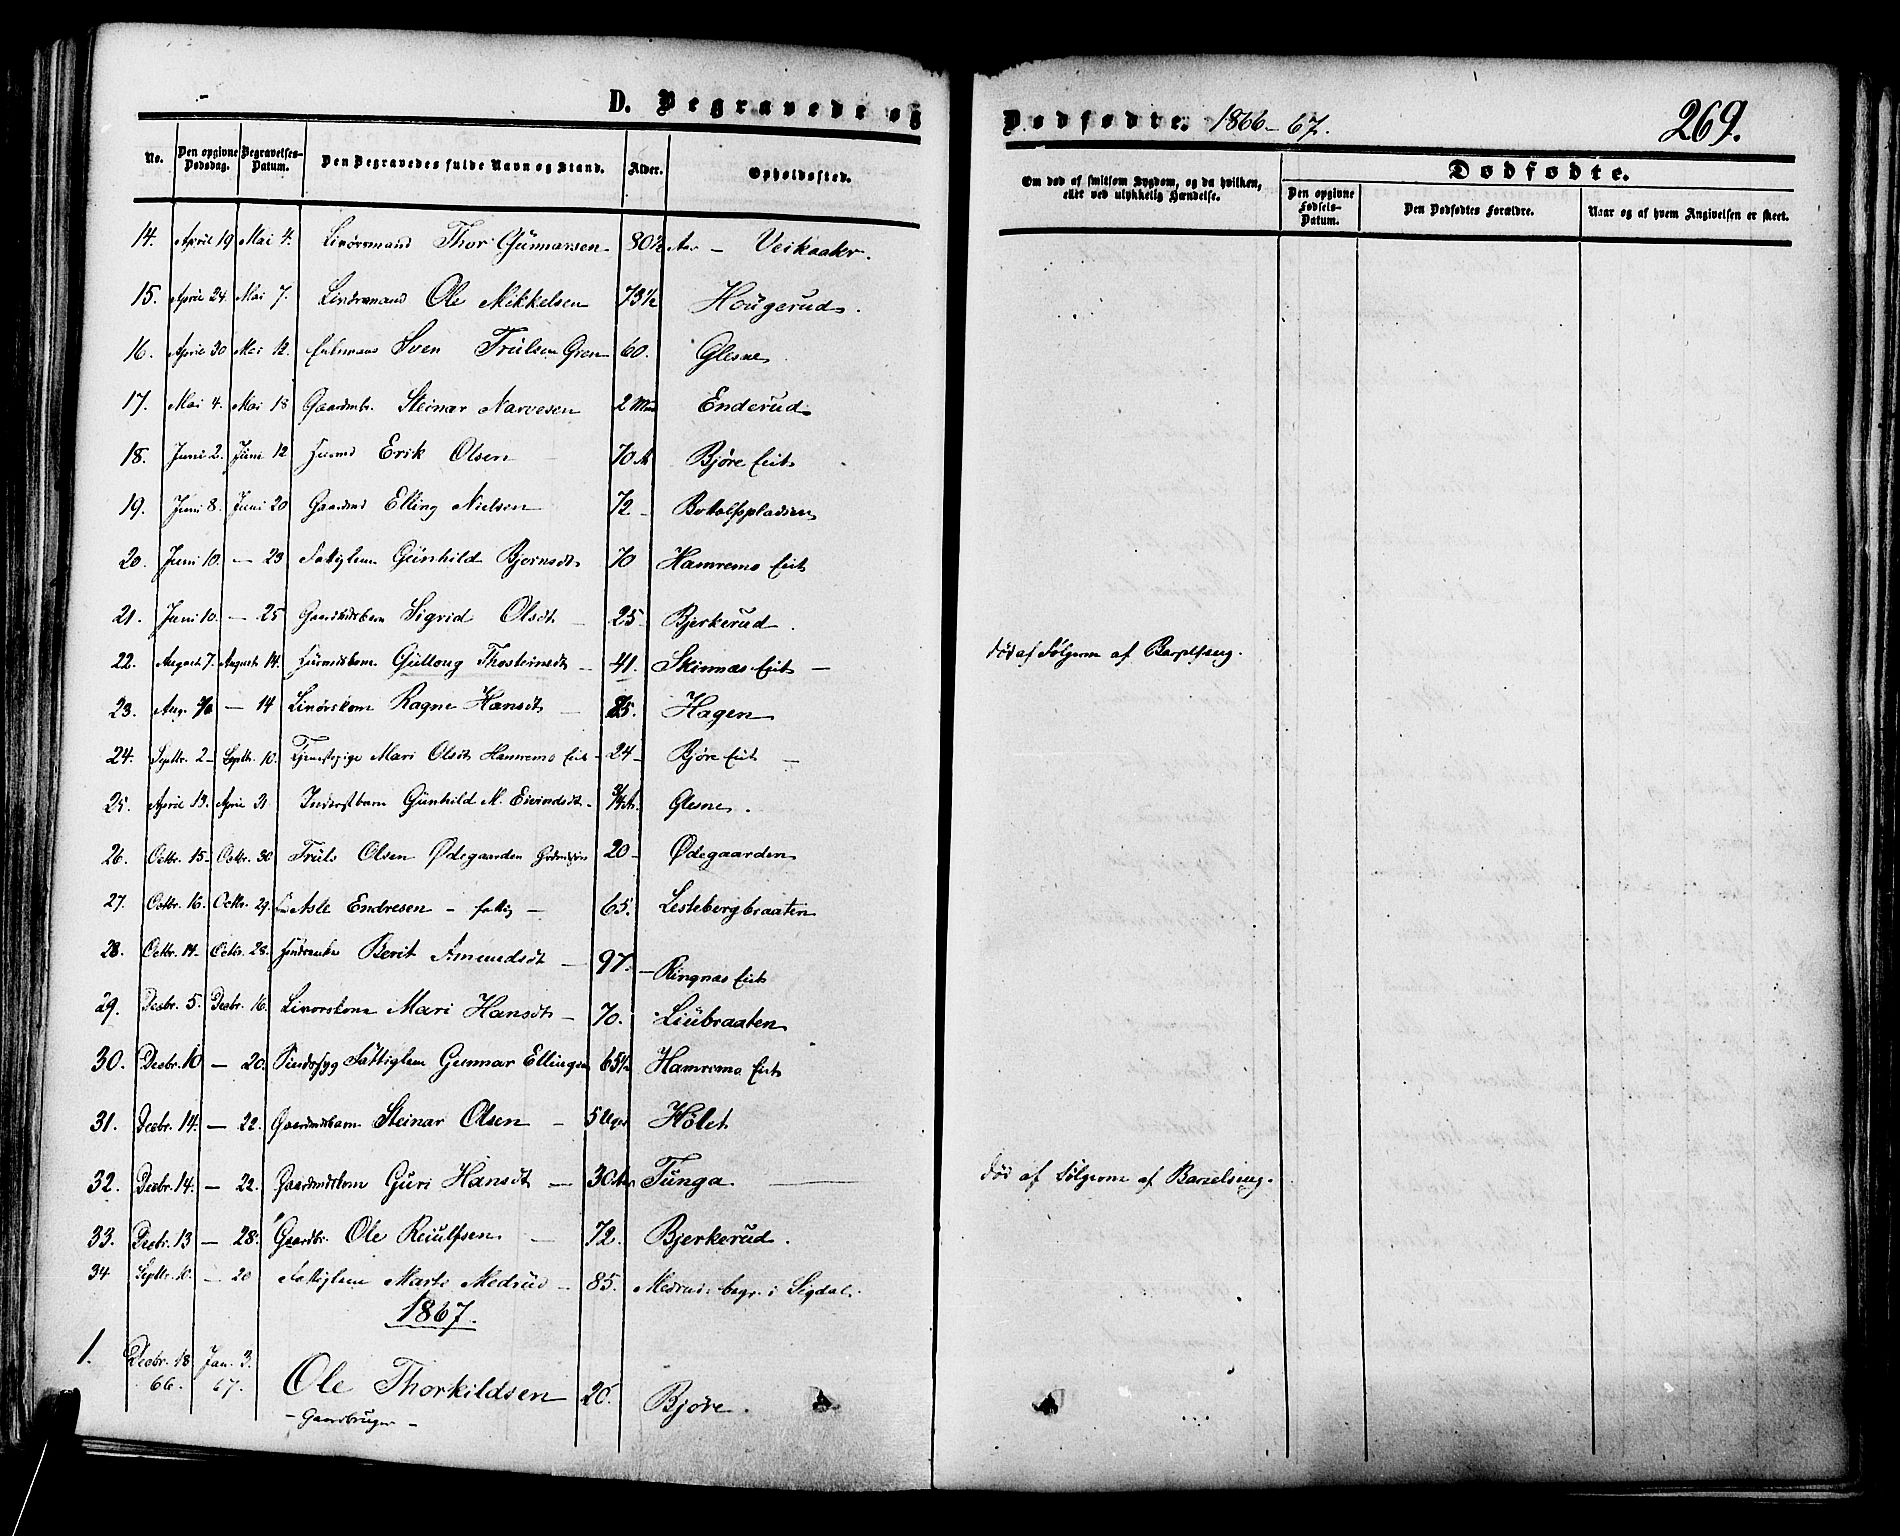 D. Begravede og Dødfødte. 1866-67. 269.
No. Den opgivne Dødsdag. Begravelses-Datum. Den Begravedes fulde Navn og Stand. Alder. Opholdssted. Om død af smitsom Sygdom, og da hvilken, eller ved ulykkelig Hændelse. Dødfødte. Den opgivne Fødsels-Datum. Den Dødfødtes Forældre. Naar og af hvem Angivelsen er skeet.
14. April 19 Mai 4. Thor Gunnarsen 80½ Aar - Veikaaker.
15. April 24. Mai 7. Ole Mikkelsen 73½ Hougerud.
16. April 30 Mai 12. Sven Trulsen Gren 60. Glesne
17. Mai 4. Mai 18 Gaardmbr. Steinar Narvesen 2 Mdr Enderud
18. Juni 2. Juni 12 Erik Olsen 70 A Bjøre Eiet
19. Juni 8. Juni 20 Gaardmd Elling Nielsen 72 - Botolfspladsen
20. Juni 10. - 23 Fattiglem Gunhild Bjørnsdt 70 Hamremo Eiet
21. Juni 10. - 25 Gaardmdsbarn Sigrid Olsdt - 25 - Bjerkerud.
22. August 7. August 14. Gullong Thosteinsdt - 41. Skinnæs Eiet - død af Følgerne af Barselseng.
23. Aug. - 14 Ragne Hansdt - 85. Hagen
24. Septbr. 2 - Septbr. 10. Tjenestepige Mari Olsdt Hamremo Eiet - 24 - Bjøre Eiet -
25. April 13. April 21 Inderstbarn Gunhild M. Eivindsdt. ¾ A. Glesne.
26. Octbr. 15 - Octbr. 30 Truls Olsen Ødegaarden 20 - Ødegaarden
27. Octbr. 16. Octbr. 29. Asle Endresen - fattig - 65. Lesteberg braaten
28. Octbr. 14 - Octbr. 28. Berit Amundsdt - 97. - Ringnæs Eiet
29. Decbr. 5. Decbr. 16. Mari Hansdt - 70. Liubraaten
30. Decbr. 10 - 20. Sindssyg Fattiglem Gunnar Ellingsen 65½ Hamremo Eiet
31. Decbr. 14. - 22. Gaardmdsbarn Steinar Olsen - 5 Uger Hølet
32. Decbr. 14. - 22. Gaardmdskone Guri Hansdt - 30 Aar Tunga død af Følgerne af Barselseng.
33. Decbr. 13 - 28. Gaardbr. Ole Reiulfsen - 72. Bjerkerud.
34 Septbr. 10. - 20 Fattiglem Marte Medrud - 85. Medrud. begr. i Sigdal.
1867.
1. Decbr. 18 Jan. 3.
66. 67. Ole Thorkildsen 26. Bjøre.
- Gaardbruger -